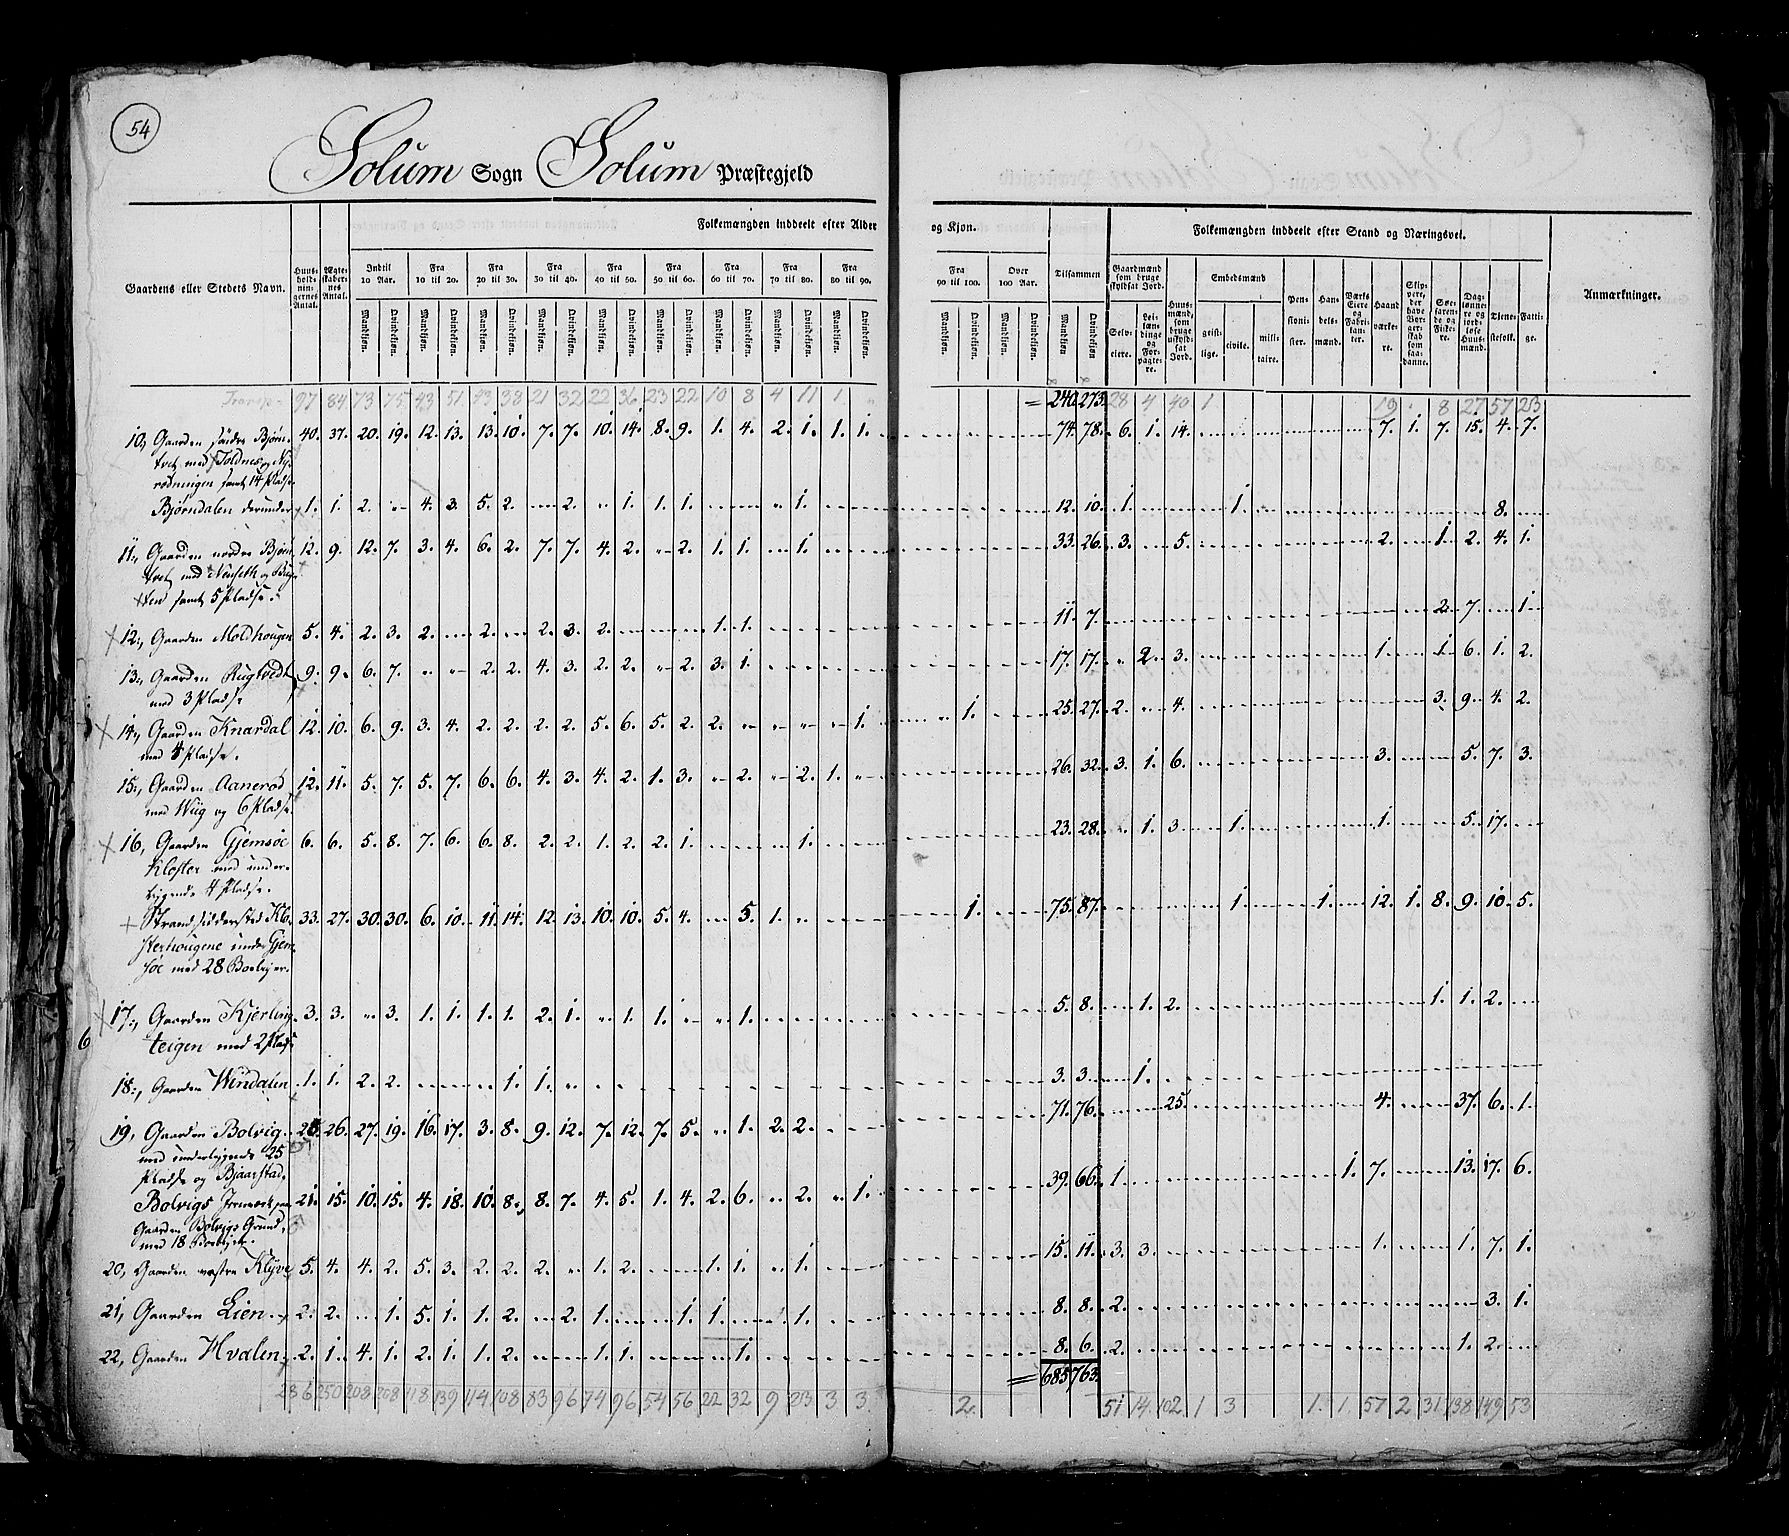 54
Solum Sogn Solum Præstegjeld
Gaardens eller Stedets Navn. Huus-holdnin-gernes Antal. Ægte-skaber-nes Antal. Folkemængden inddeelt efter Alder og Kjøn. Tilsammen Folkemængden inddeelt efter Stand og Næringsvei. Anmærkninger.
Indtil 10 Aar. Fra 10 til 20. Fra 20 til 30. Fra 30 til 40. Fra 40 til 50. Fra 50 til 60. Fra 60 til 70. Fra 70 til 80. Fra 80 til 90. Fra 90 til 100. Over 100 Aar.
Mandkjøn. Qvindekjøn. Mandkjøn. Qvindekjøn. Mandkjøn. Qvindekjøn. Mandkjøn. Qvindekjøn. Mandkjøn. Qvindekjøn. Mandkjøn. Qvindekjøn. Mandkjøn. Qvindekjøn. Mandkjøn. Qvindekjøn. Mandkjøn. Qvindekjøn. Mandkjøn. Qvindekjøn. Mandkjøn. Qvindekjøn. Mandkjøn Qvindekjøn
Gaardmænd som bruge skyldsat Jord. Selv-eiere. Lei-læn-dinge og For-pagte-re. Huus-mænd, som bruge uskyld-sat Jord. Embedsmænd geist-lige. civile. mili-taire. Pen-sioni-ster. Han-dels-mænd. Værks Eiere og Fabri-kan-ter. Haand værke-re. Skip-pere, der have Bor-ger-skab som saa-danne. Søe-faren-de og Fiske-re. Dag-lønne-re og jord-løse Huus-mænd. Tjene-stefolk. Fatti-ge.
97 84 73 75 43 51 43 38 21 32 22 36 23 22 10 8 4 11 1 = 240 273 28 4 40 1 19 8 27 57 23
10, Gaarden søndre Bjørn- 40. 37. 20. 19. 12. 13. 13. 10. 7. 7. 10. 14. 8. 9. 1. 4. 2. 1. 1. 1. 74. 78. 6. 1. 14. 7. 1. 7. 15. 4. 7.
tvet med Toldnes og Ny-
rødningen samt 14 Pladse.
Bjørndalen derunder 1. 1. 2. 4. 3. 5. 2. 2. 1. 1. 1. 1. 12. 10. 1. 1. 8.
11, Gaarden nordre Bjørn 12. 9. 12. 7. 3. 4. 6. 2. 7. 7. 4. 2. 2. 1. 1. 1. 33. 26. 3. 5. 2. 1. 2. 4. 1.
tvet med Nenseth og
samt 5 Pladse.
12, Gaarden Moldhougen 5. 4. 2. 3. 2. 2. 2. 3. 2. 1. 1. 11. 7. 2. 7. 1.
13, Gaarden Rugtvedt 9. 9. 6. 7. 2. 2. 4. 3. 2. 2. 2. 3. 1. 17. 17. 2. 3. 1. 1. 6. 1. 2.
med 3 Pladse
14, Gaarden Knardal 12. 10. 6. 9. 3. 4. 2. 2. 2. 2. 5. 6. 5. 2. 2. 1. 1. 25. 27. 2. 4. 3. 9. 4. 2.
med 4 Pladse.
15, Gaarden Aanerød 12. 11. 5. 7. 5. 7. 6. 6. 4. 3. 4. 2. 1. 3. 2. 2. 1. 26. 32. 3. 1. 6. 3. 5. 7. 3.
med Wiig og 6 Pladse.
16, Gaarden Gjemsøe 6. 6. 5. 8. 7. 6. 6. 8. 2. 2. 1. 2. 2. 1. 1. 23. 28. 1. 3. 1. 1. 5. 17.
Kloster med under-
liggende 4 Pladse.
Strandsidderstedet Klo- 33. 27. 30. 30. 6. 10. 11. 14. 12. 13. 10. 10. 5. 4. 5. 1. 1. 75. 87. 1. 1. 12. 1. 8. 9. 10. 5.
sterhougene under Gjem-
søe med 28 Boeliger.
17, Gaarden Kjerling- 3. 3. 3. 1. 1. 1. 1. 2. 1. 1. 1. 1. 5. 8. 1. 2. 1. 1. 2.
6
teigen med 2 Pladse
18, Gaarden Windalen 1. 1. 2. 2. 1. 1. 3. 3. 1.
19, Gaarden Bolvig 26. 27. 19. 16. 17. 3. 8. 9. 12. 7. 12. 7. 5. 1. 2. 2. 71. 76. 25. 4. 37. 6. 1.
med underliggende 25
Pladse og Bjaarstad.
Bolvigs Jernværk paa 21. 15. 10. 15. 4. 18. 10. 8. 8. 7. 4. 5. 1. 4. 2. 6. 2. 1. 39. 66. 1. 1. 7. 13. 17. 6.
Gaarden Bolvigs Grund,
med 18 Boeliger.
20, Gaarden vestre Klyve 5. 4. 4. 2. 5. 3. 2. 2. 2. 1. 2. 1. 1. 1. 15. 11. 3. 3. 1. 1. 7. 1.
21, Gaarden Lien 2. 2. 1. 5. 1. 1. 2. 2. 1. 1. 1. 1. 8. 8. 2. 3. 1.
22, Gaarden Hvalen 2. 1. 4. 1. 2. 1. 1. 2. 1. 1. 1. 8. 6. 2. 1. 2.
= 685 763.
286 250 208 208 118 139 114 108 83 96 74 96 54 56 22 32 9 23 3 3 2. 51 14. 102 1 3 1. 1. 57 2 31 138 149 53